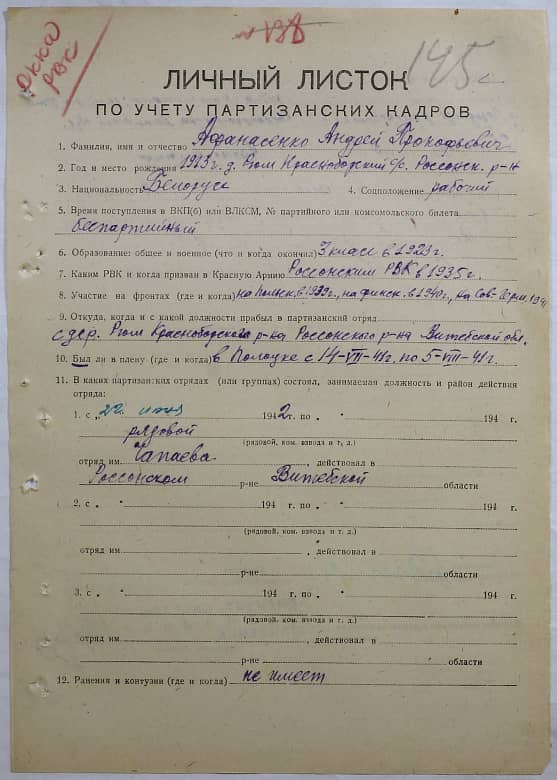 ОККА
РВК
145 с
ЛИЧНЫЙ ЛИСТОК
ПО УЧЕТУ ПАРТИЗАНСКИХ КАДРОВ
1. Фамилия, имя и отчество Афанасенко Андрей Прокофьевич
2. Год и место рождения 1913 г. д. Рюм Красноборский с/с. Россонск. р-н
3. Национальность Белорусс 4. Соцположение рабочий
5. Время поступления в ВКП(б) или ВЛКСМ, № партийного или комсомольского билета
беспартийный
6. Образование: общее и военное (что и когда окончил) 3 класс в 1923 г.
7. Каким РВК и когда призван в Красную Армию Россонским РВК в 1935 г.
8. Участие на фронтах (где и когда) на Польск. в 1939 г., на финск. в 1940 г., на Сов-Герм. 1941
9. Откуда, когда и с какой должности прибыл в партизанский отряд
с дер. Рюм Красноборского р-на Россонского р-на Витебской обл.
10. Был ли в плену (где и когда) в Полоцке с 14-VII-41 г. по 5-VIII-41 г.
11. В каких партизанских отрядах (или группах) состоял, занимаемая должность и район действия
отряда:
1. с „22 июня 1942 г. по „ “ 194 г.
рядовой
(рядовой, ком. взвода и т. д.)
отряд им. Чапаева, действовал в
Россонском р-не Витебской области
2. с „ “ 194 г. по „ “ 194 г.
(рядовой, ком. взвода и т. д.)
отряд им. , действовал в
р-не области
3. с „ “ 194 г. по „ “ 194 г.
(рядовой, ком. взвода и т. д.)
отряд им. , действовал в
р-не области
12. Ранения и контузии (где и когда) не имеет